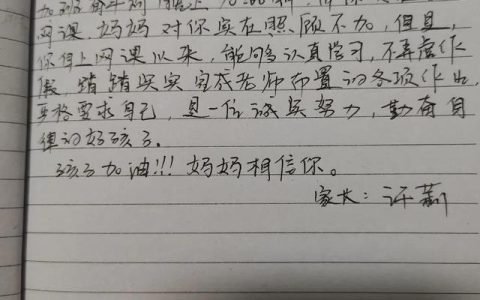 网课,妈妈对你实在照顾不加,但是,
你自上网课以来,能够认真学习,不弄虚作
假,踏踏实实完成老师布置的各项作业,
严格要求自己,是一位诚实努力,勤奋自
律的好孩子。
孩子加油!!!妈妈相信你。
家长:许